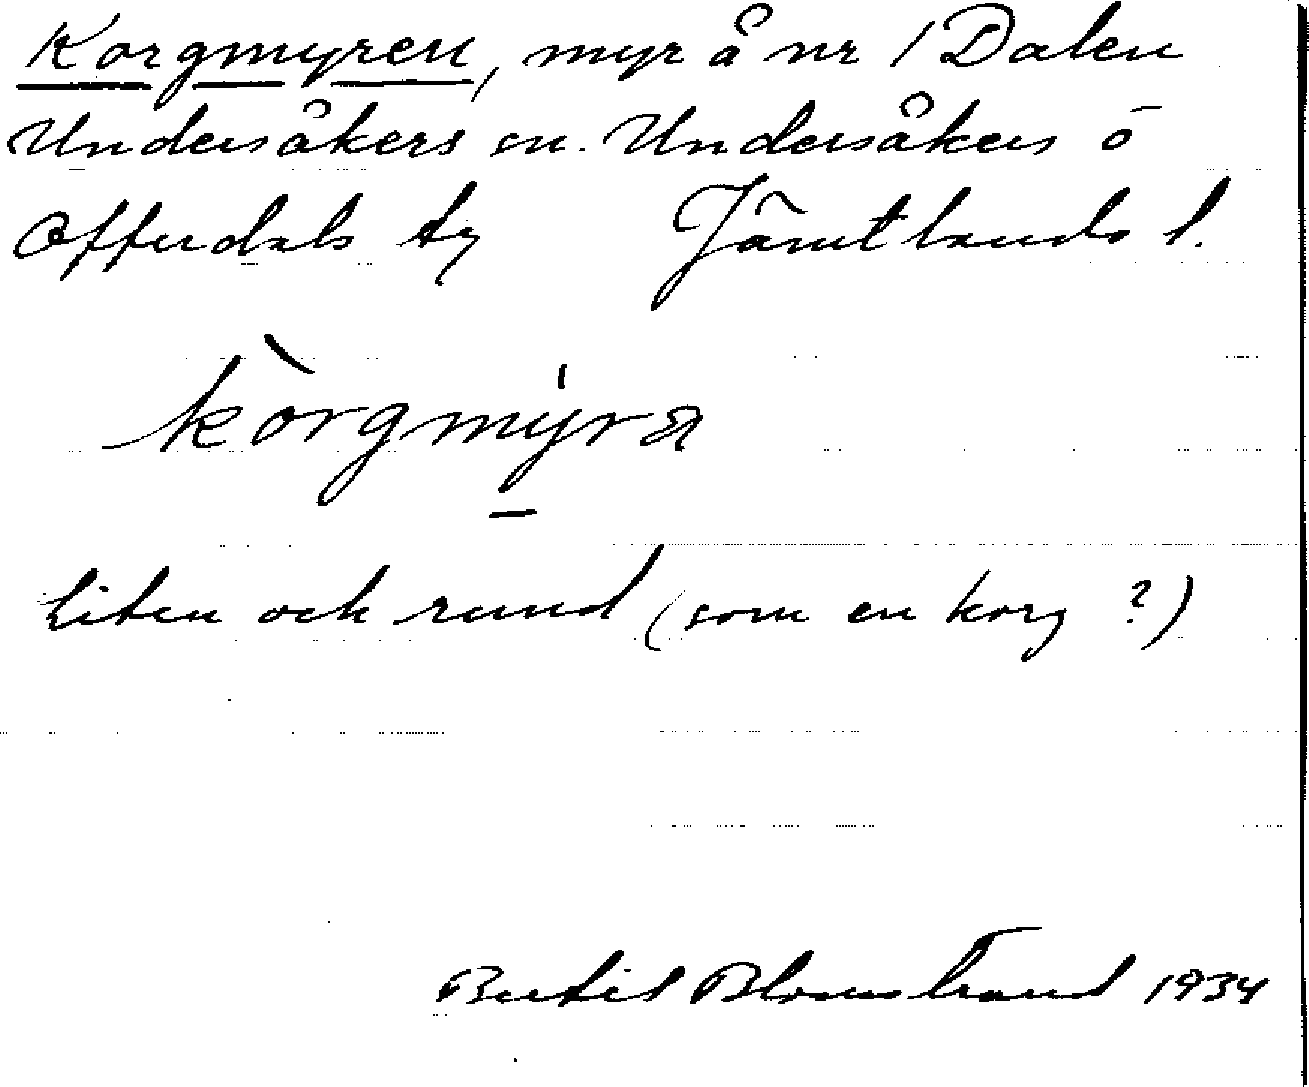 Korgmyren, myr å nr 1 Dalen
Undersåkers sn. Undersåkers o
Offerdals tg Jämtlands l.
kòrgmyra
Liten och rund (som en korg ?)
Bertil Blomstrand 1934